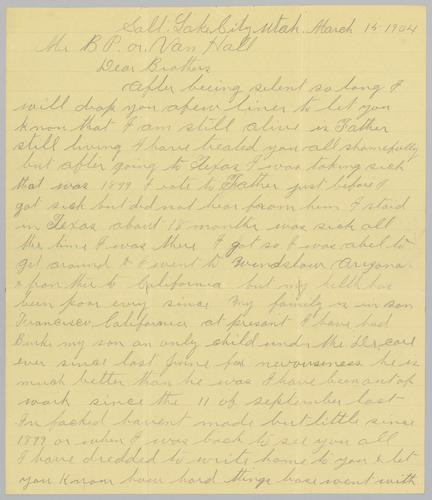 Salt Lake City Utah. March 15 1904
Mr B P. or. Van Hall
Dear Brothers
After beeing silent so long I
will drop you afew lines to let you
know that I am still alive is Father
still living I have treated you all shamefully
but after going to Texas I was taking sick
that was 1899 I rote to Father just before I
got sick but did not hear from him I staid
in Texas about 18 months was sick all
the time I was there I got so I was abel to
get around & I went to Windslow, Arizona.
& from ther to California but my helth has
been poor evry since My family is in San
Francisco, California at presant I have had
my son an only child under the Dr care
ever since last June for nervousness he is
much better than he was I have been out of
work since the 11 of september last
In facked havent made but little since
1899 or when I was back to see you all
I have dredded to write home to you & let
you know how hard things have went with